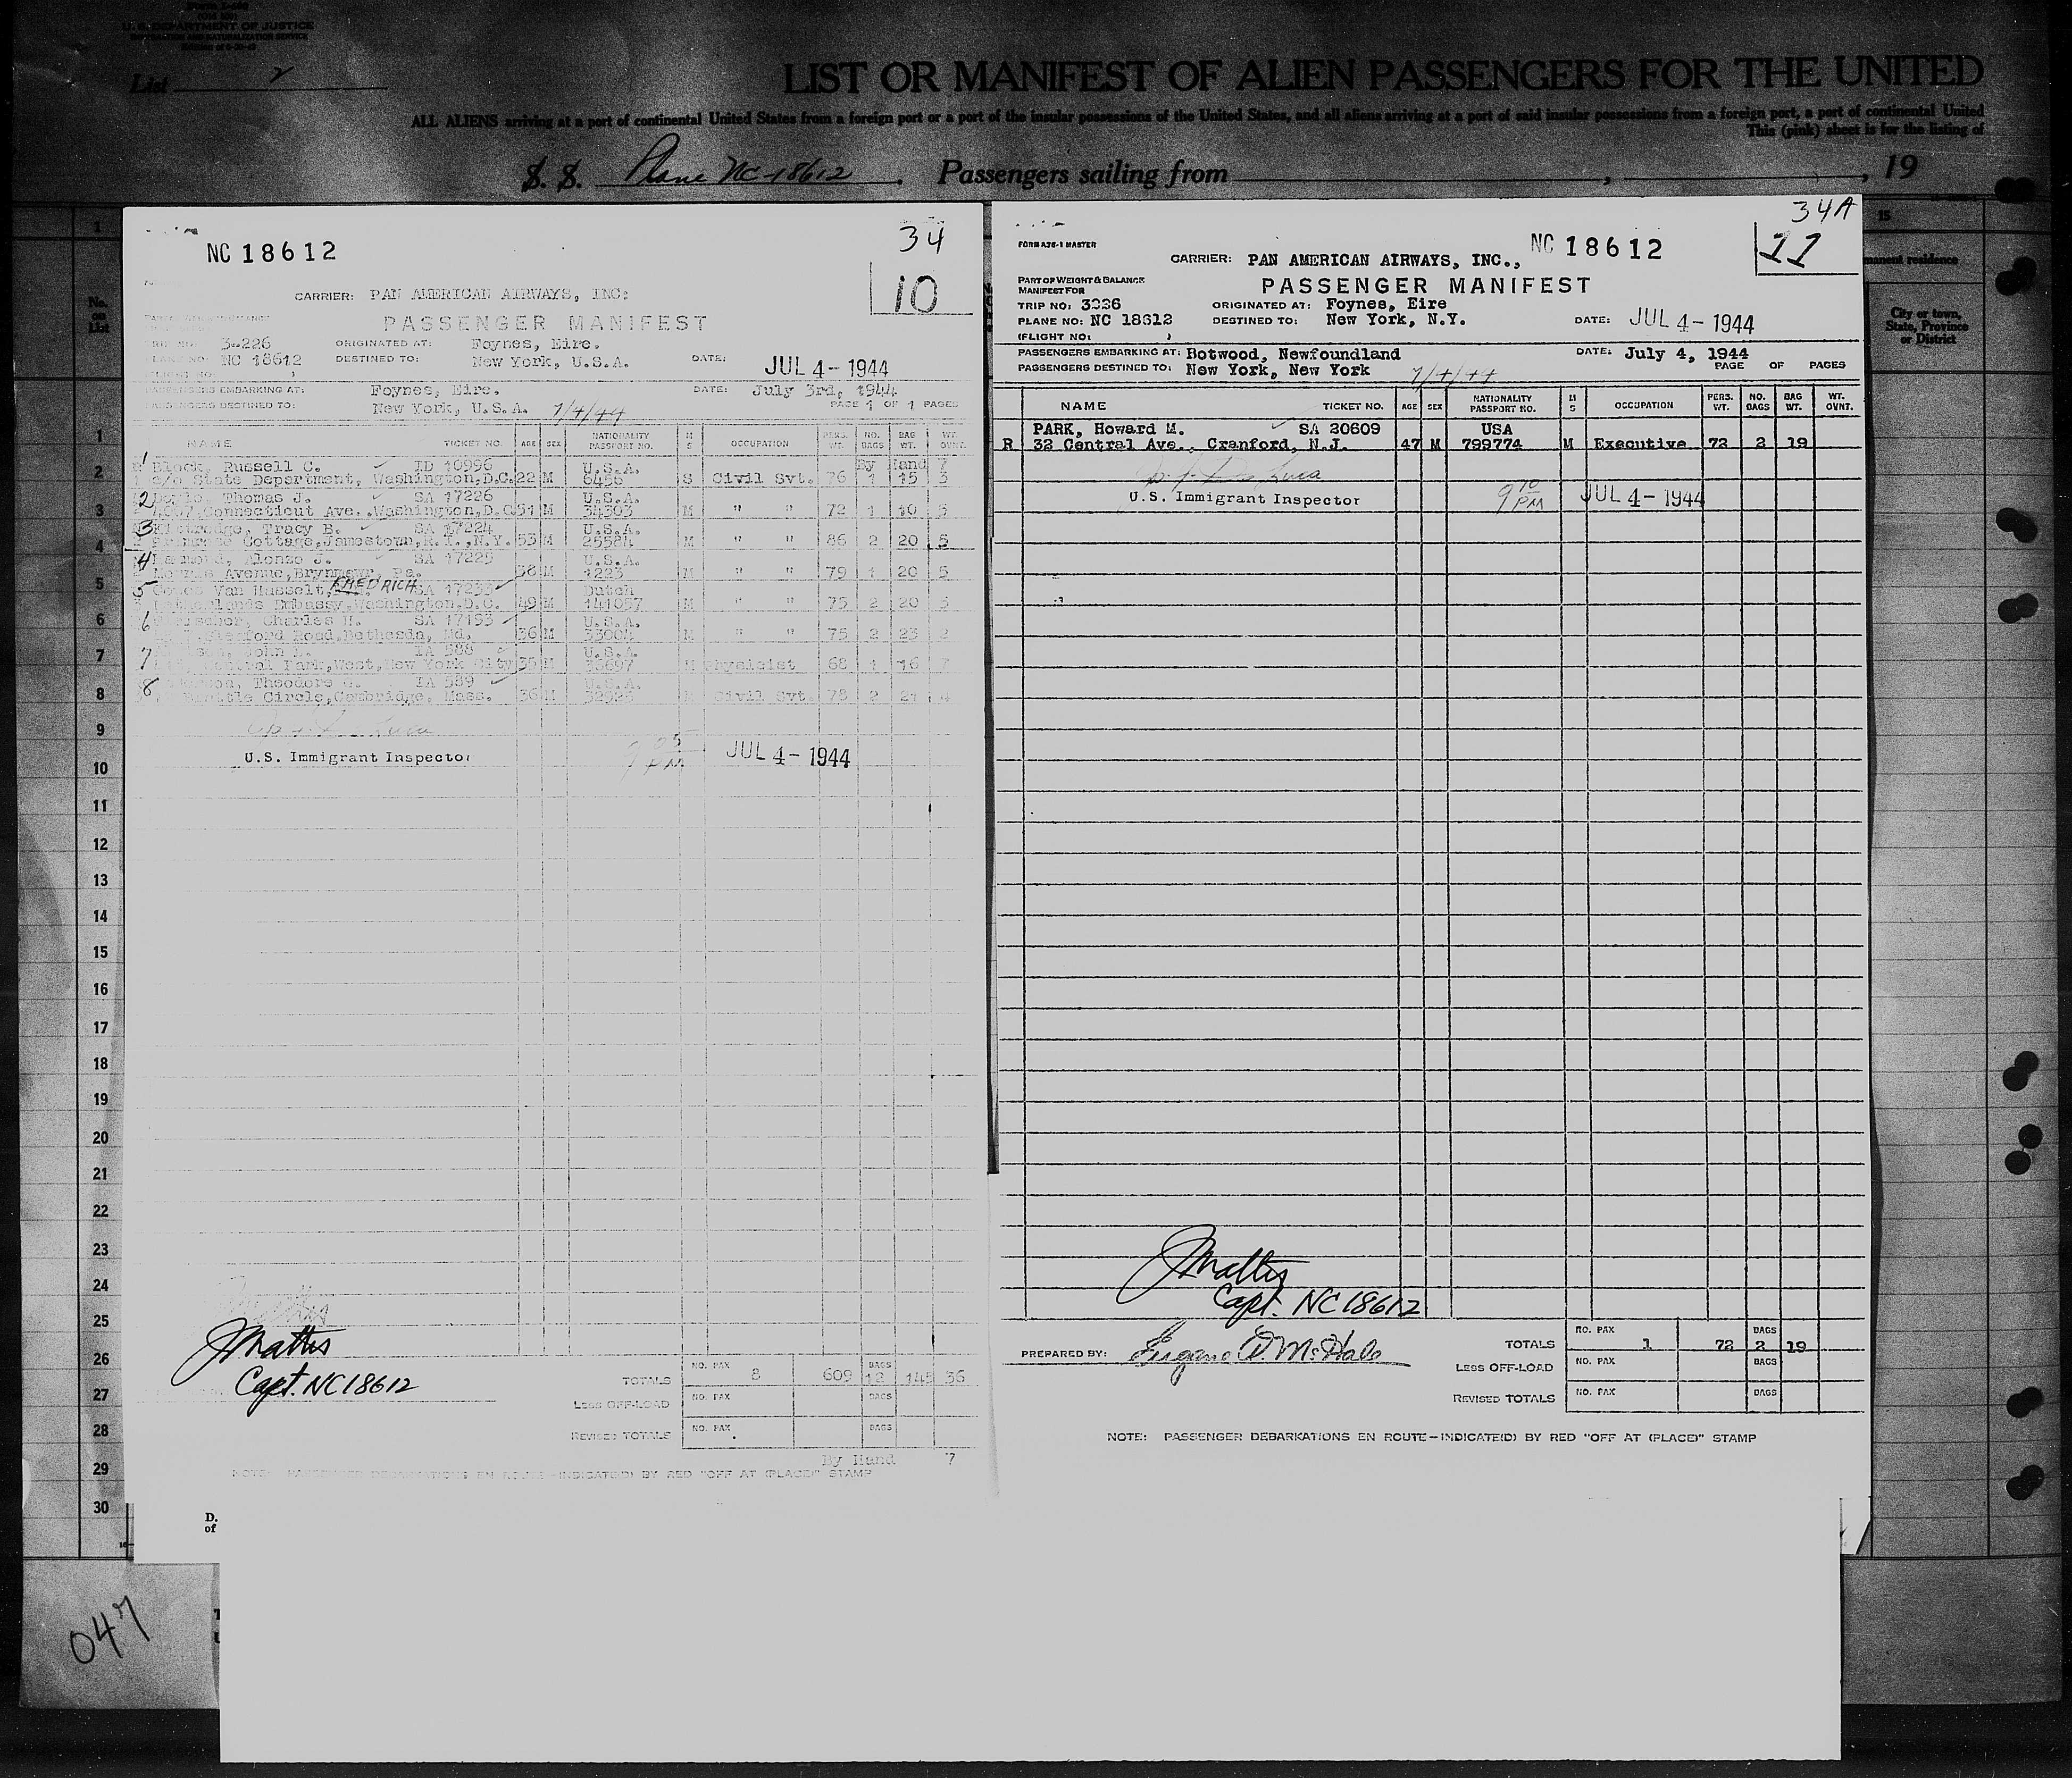 U.S. DEPARTMENT OF JUSTICE
List 2
LIST OR MANIFEST OF ALIEN PASSENGERS FOR THE UNITED
ALL ALIENS arriving at a port of continental United States from a foreign port or a port of the insular possessions of the United States, and all aliens arriving at a port of said insular possessions from a foreign port, a part of continental United
This (pink) sheet is for the listing of
S. S. Plane NC-18612 . Passengers sailing from , , 19
1
No. on List
1
2
3
4
5
6
7
8
9
10
11
12
13
14
15
16
17
18
19
20
21
22
23
24
25
26
27
28
29
30
NC 18612
34
10
CARRIER: PAN AMERICAN AIRWAYS, INC:
PASSENGER MANIFEST
3-226 ORIGINATED AT: Foynes, Eire.
NC 18612 DESTINED TO: New York, U.S.A. DATE: JUL 4-1944
PASSENGERS EMBARKING AT: Foynes, Eire. DATE: July 3rd, 1944
PASSENGERS DESTINED TO: New York, U.S.A. 7/4/44 PAGE 1 OF 1 PAGES
NAME TICKET NO. AGE SEX NATIONALITY PASSPORT NO. M S OCCUPATION PERS. WT. NO. BAGS BAG WT. WT. OVNT.
1 Block, Russell C. ID 10996 U.S.A. By Hand 7
c/o State Department, Washington,D.C. 22 M 6456 S Civil Svt. 76 1 15 3
2 Thomas J. SA 17226 U.S.A.
Connecticut Ave. Washington,D.C 51 M 34303 M " " 72 1 10 5
3 Tracy B. SA 17224 U.S.A.
Cottage,Jamestown,R.I.,N.Y. 53 M 25584 M " " 86 2 20 5
4 Alonzo J. SA 17225 U.S.A.
Avenue,Brynmawr, Pa. 38 M 1223 M " " 79 1 20 5
5 Van Hasselt, FREDRICH SA 17233 Dutch
Embassy,Washington,D.C. 49 M 141057 M " " 75 2 20 5
6 Charles H. SA 17153 U.S.A.
Road,Bethesda, Md. 36 M 33904 M " " 75 2 23 2
7 John IA 588 U.S.A.
Central Park,West,New York City 35 M 36697 M Physicist 68 1 16 7
8 Theodore IA 589 U.S.A.
Circle,Cambridge, Mass. 36 M M Civil Svt. 78 2 21 4
U.S. Immigrant Inspector 9 05 PM JUL 4-1944
JMattis
Capt. NC18612
TOTALS NO. PAX 8 609 BAGS 12 145 36
LESS OFF-LOAD NO. PAX BAGS
REVISED TOTALS NO. PAX BAGS
By Hand 7
NOTE: PASSENGER DEBARKATIONS EN ROUTE—INDICATE(D) BY RED "OFF AT (PLACE)" STAMP
D.
of
047
34A
FORM A26-1 MASTER
NC 18612
11
CARRIER: PAN AMERICAN AIRWAYS, INC.,
PART OF WEIGHT & BALANCE MANIFEST FOR
PASSENGER MANIFEST
TRIP NO: 3226 ORIGINATED AT: Foynes, Eire
PLANE NO: NC 18612 DESTINED TO: New York, N.Y. DATE: JUL 4-1944
(FLIGHT NO: )
PASSENGERS EMBARKING AT: Botwood, Newfoundland DATE: July 4, 1944
PASSENGERS DESTINED TO: New York, New York 7/4/44 PAGE OF PAGES
NAME TICKET NO. AGE SEX NATIONALITY PASSPORT NO. M S OCCUPATION PERS. WT. NO. BAGS BAG WT. WT. OVNT.
PARK, Howard M. SA 20609 USA
R 32 Central Ave., Cranford, N.J. 47 M 799774 M Executive 72 2 19
U.S. Immigrant Inspector 9 10 PM JUL 4-1944
JMattis
Capt. NC18612
PREPARED BY: Eugene D. McHale
TOTALS NO. PAX 1 72 BAGS 2 19
LESS OFF-LOAD NO. PAX BAGS
REVISED TOTALS NO. PAX BAGS
NOTE: PASSENGER DEBARKATIONS EN ROUTE—INDICATE(D) BY RED "OFF AT (PLACE)" STAMP
15
manent residence
City or town, State, Province or District